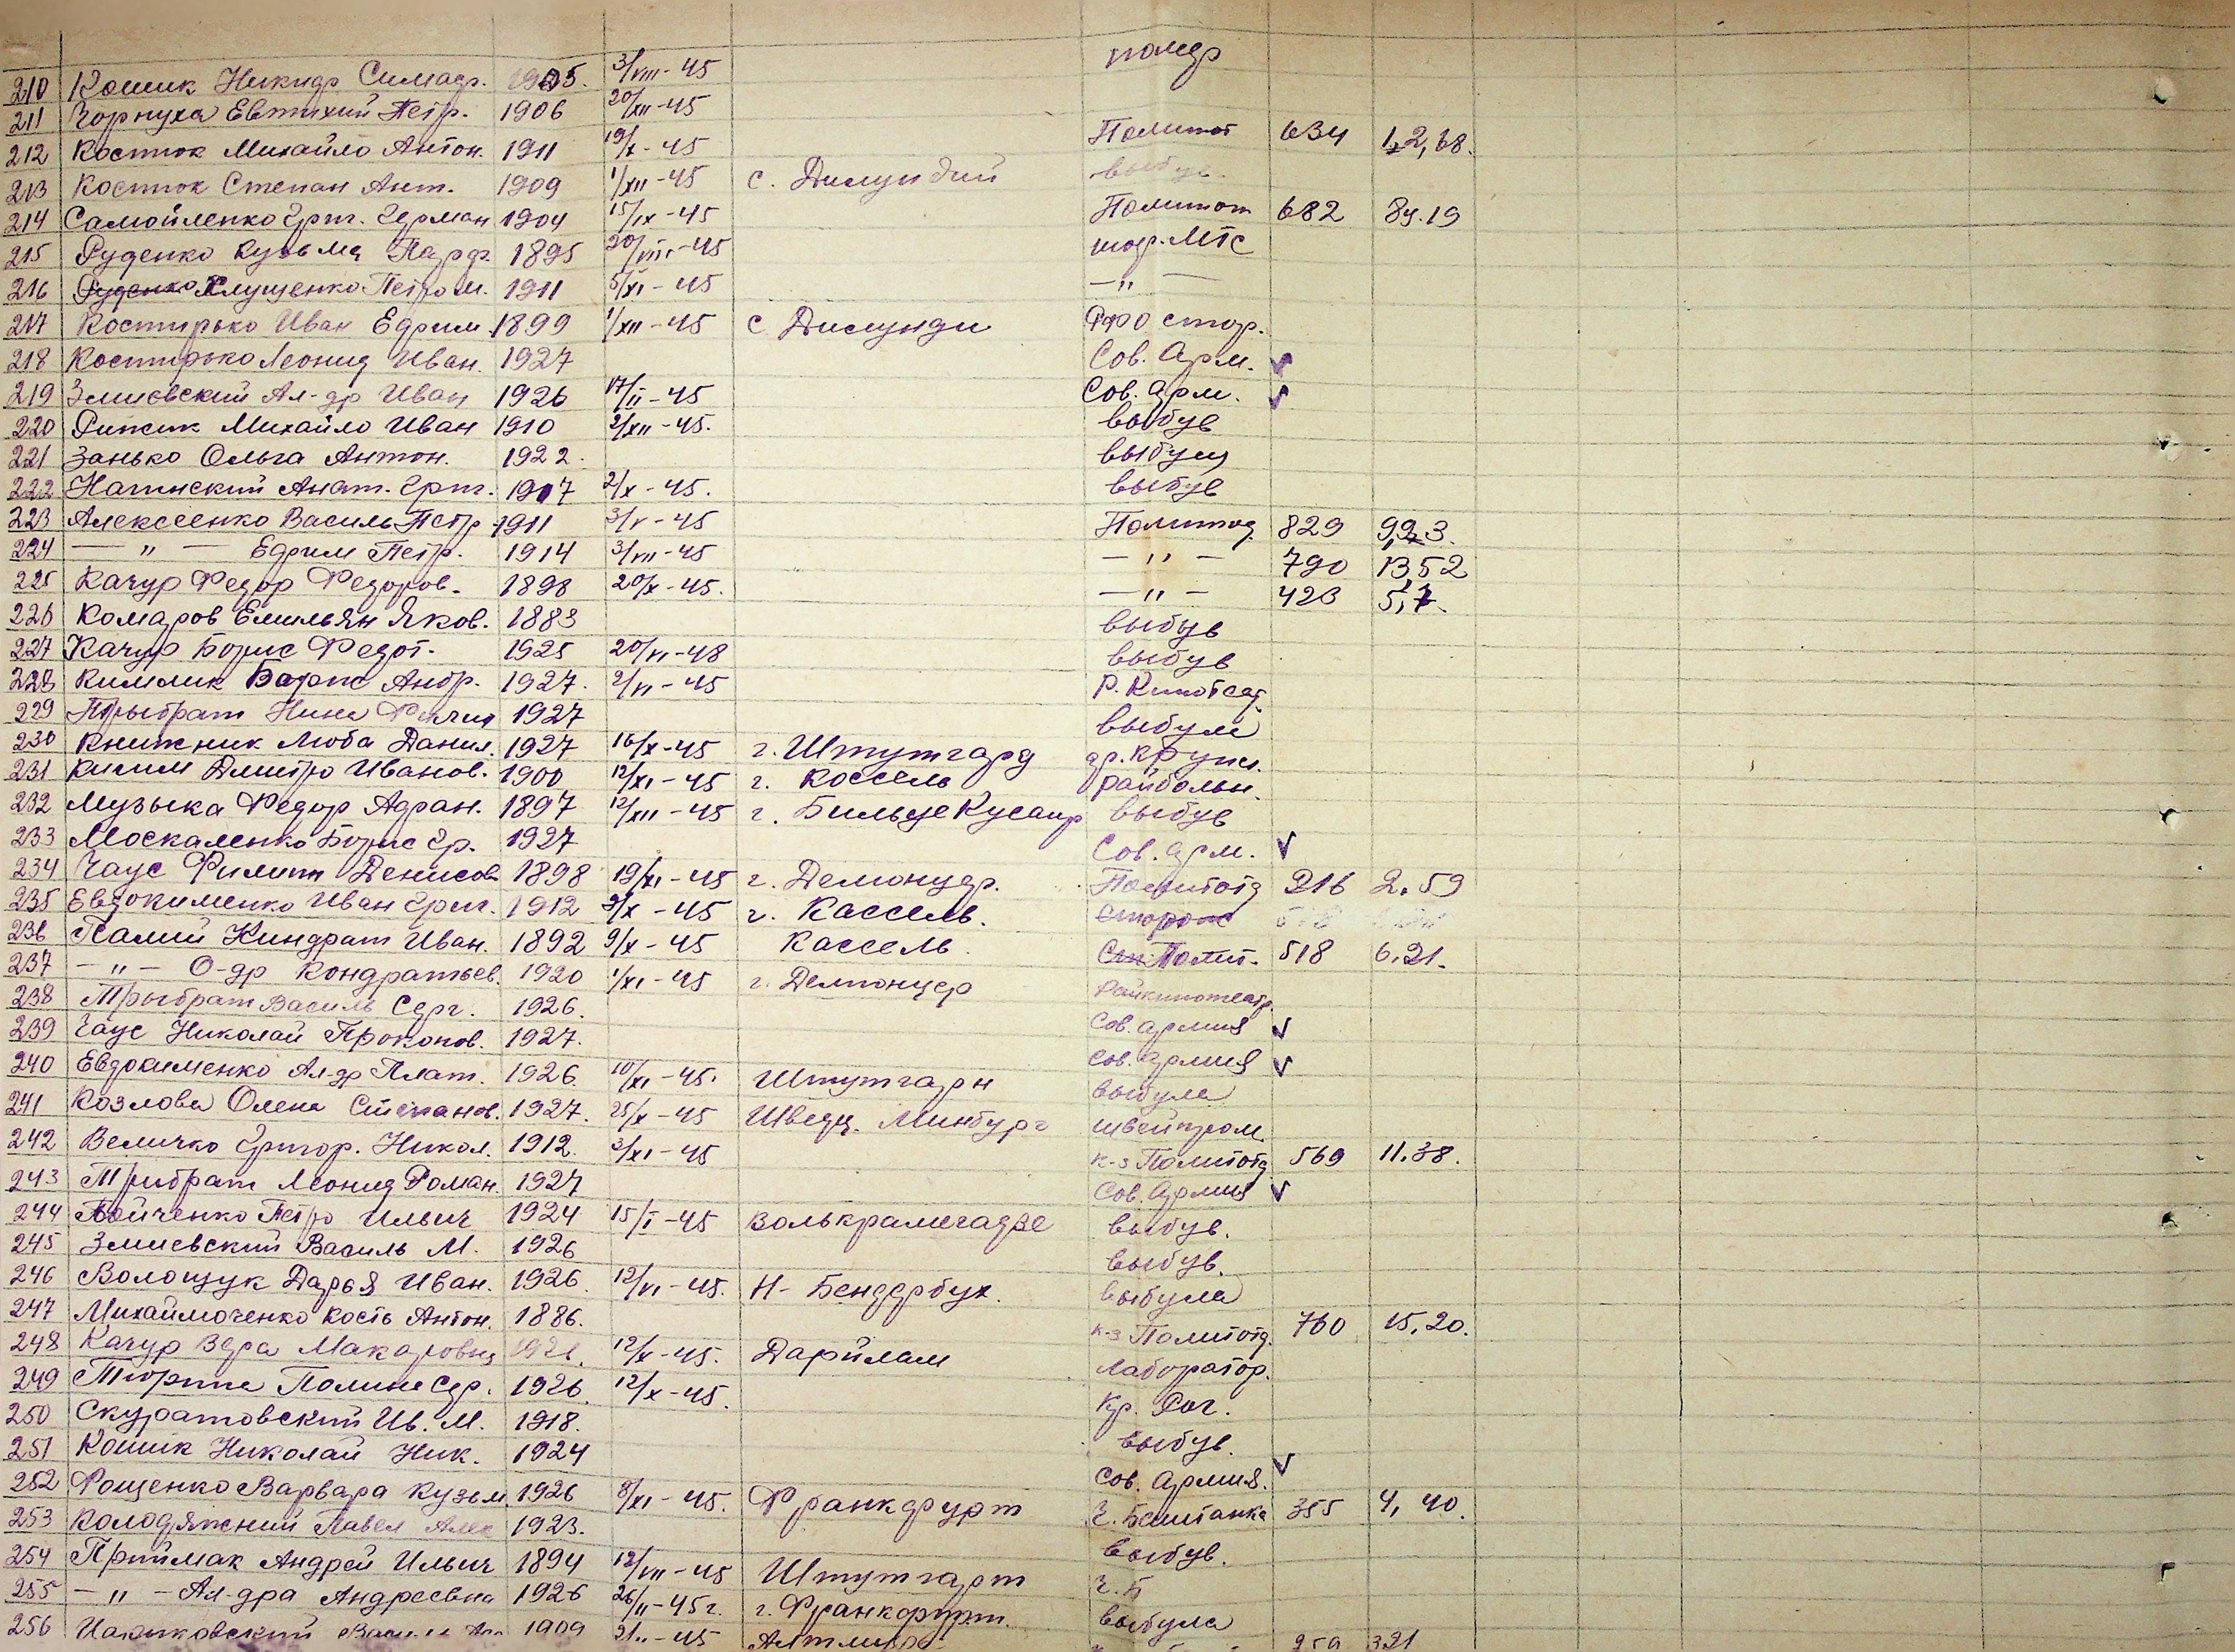 210 Кошик Никидр Симадр. 1905. 3/VIII-45 помер
211 Чорнуха Евтихий Петр. 1906 20/XII-45
212 Косток Михайло Антон. 1911 19/X-45 Политот 634 1,2,68.
213 Косток Степан Ант. 1909 1/XII-45 с. выбув.
214 Самойленко Григ. Герман 1904 15/IX-45 Политот 682 8у.19
215 Руденко Кузьма Парф. 1895 20/VIII-45 шоф. МТС
216 Руденко Хлущенко Петро М. 1911 5/XI-45 —"—
217 Костирько Иван Ефрим. 1899 1/XII-45 с. РФО стор.
218 Костирько Леонид Иван. 1927 Сов. Арм. ✓
219 Змиевский Ал-др Иван 1926 17/II-45 Сов. Арм. ✓
220 Рижик Михайло Иван 1910 2/XII-45. выбув
221 Занько Ольга Антон. 1922. выбула
222 Анат. Григ. 1907 2/X-45. выбув
223 Алексеенко Василь Петр. 1911 3/V-45 Политод. 829 9,23.
224 —"— Ефрим Петр. 1914 3/VII-45 —"— 790 13,52
225 Качур Федор Федоров. 1898 20/X-45. —"— 423 5,7.
226 Комаров Емильян Яков. 1883 выбув
227 Качур Борис Федот. 1925 20/VI-48 выбув
228 Кимлик Борис Андр. 1927. 2/VI-45 Р.
229 Прыбрат Нина 1927 выбула
230 Книжник Люба Данил. 1927 16/X-45 г. Штутгард
231 Килим Дмитро Иванов. 1900 12/XI-45 г. Коссель Райбольн.
232 Музыка Федор Адриан. 1897 12/XII-45 г. выбув
233 Москаленко Борис Гр. 1927 Сов. арм. ✓
234 Чаус Филипп Денисов 1898 19/XI-45 г. Политотд 216 2.59
235 Евдокименко Иван Григ. 1912 9/X-45 г. Кассель. Сторож
236 Палий Киндрат Иван. 1892 9/X-45 Кассель. Полит. 518 6.21.
237 —"— О-др Кондратьев. 1920 1/XI-45 г.
238 Прыбрат Василь Серг. 1926. Райкинотеатр.
239 Чаус Николай Прокопов. 1927. Сов. армия ✓
240 Евдокименко Ал-др Плат. 1926. 10/XI-45. Штутгарн Сов. армия ✓
241 Козлова Олена Степанов. 1927. 25/X-45 Швец. Минбург выбула
242 Величко Григор. Никол. 1912. 3/XI-45 швейпром.
к-з Политотд 569 11.38.
243 Прибрат Леонид Роман. 1927 Сов. Армия ✓
244 Бойченко Петро Ильич 1924 15/I-45 выбув.
245 Змиевский Василь М. 1926 выбув.
246 Волощук Дарья Иван. 1926. 12/VI-45. Н-Бендербух. выбула
247 Михаймоченко Кость Антон. 1886. к-з Политотд. 760 15,20.
248 Качур Вера Макаровна 12/X-45. Лаборатор.
249 Полина Сер. 1926. 12/X-45. Кр. Рог.
250 Скуратовский Ив. М. 1918. выбув.
251 Кошик Николай Ник. 1924 Сов. Армия. ✓
252 Рощенко Варвара Кузьм. 1926 8/XI-45. Франкфурт Г. Баштанка 355 4,40.
253 Колодяжний Павел Алек 1923. выбув.
254 Приймак Андрей Ильич 1894 12/VIII-45 Штутгарт Г. Б
255 —"— Ал-дра Андреевна 1926 26/II-45г. г. Франкфурт. выбула
256 1909 45 259 321